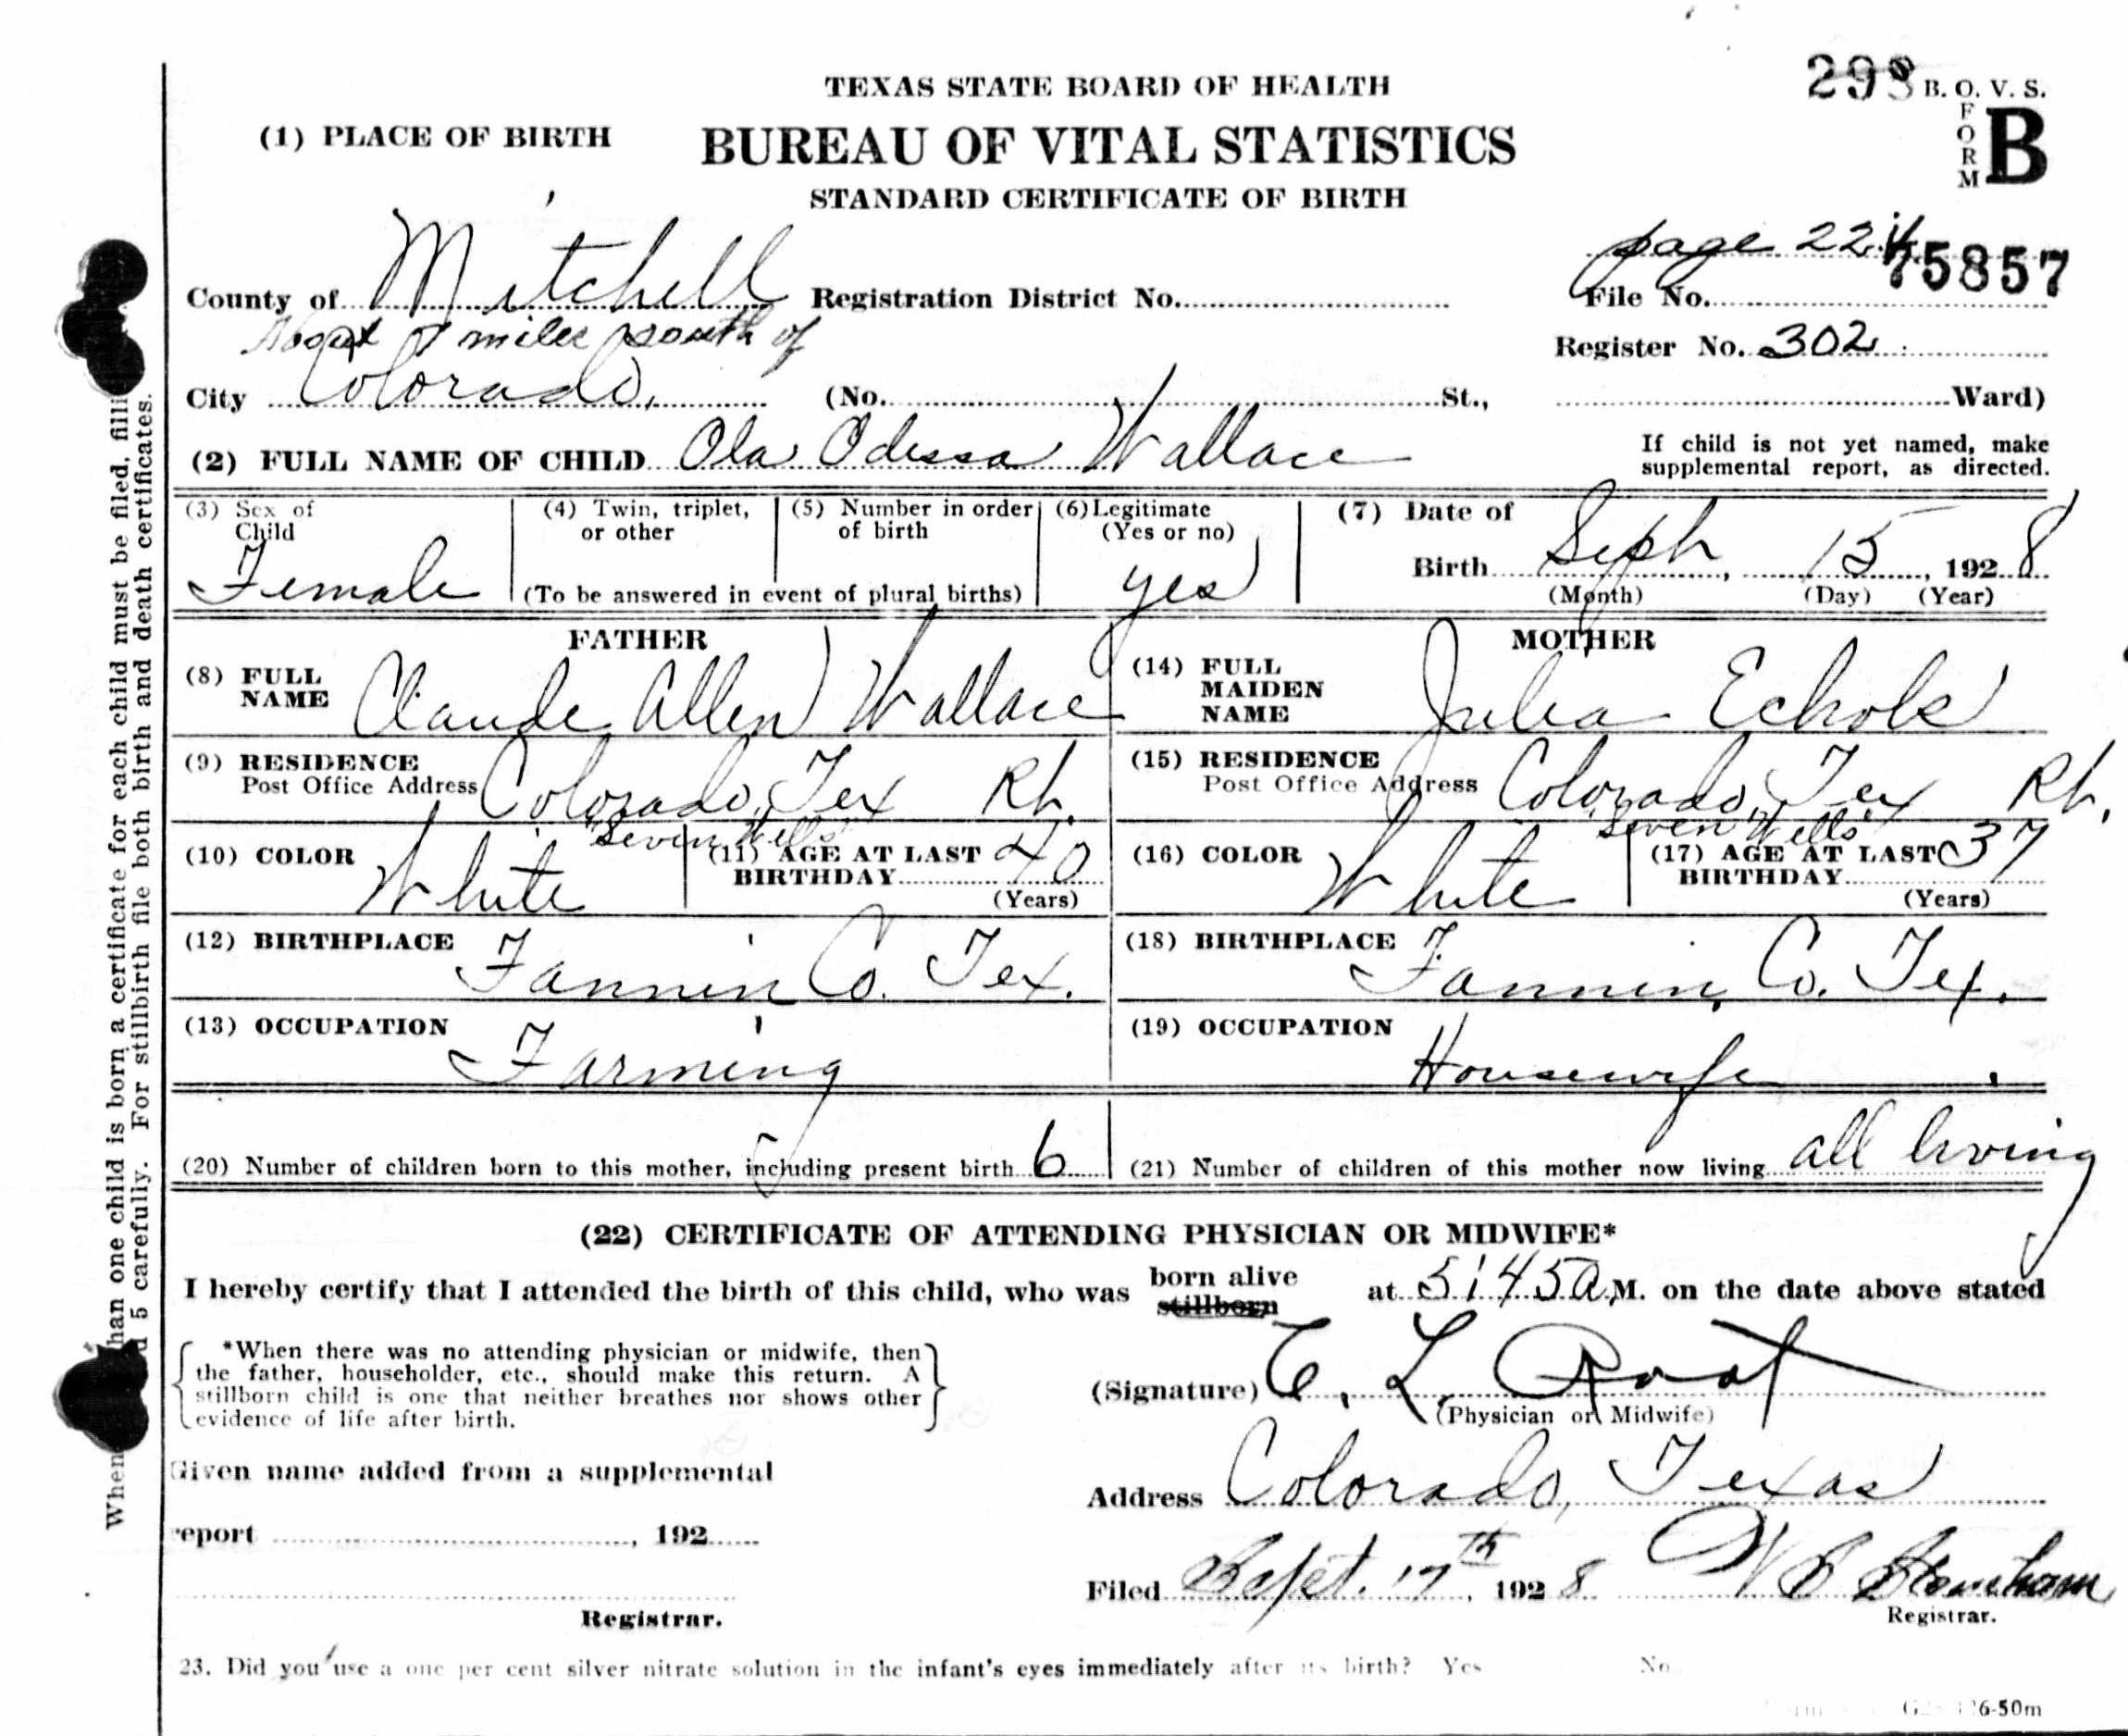 TEXAS STATE BOARD OF HEALTH
293 B. O. V. S.
(1) PLACE OF BIRTH
BUREAU OF VITAL STATISTICS
FORM B
STANDARD CERTIFICATE OF BIRTH
page 224
75857
County of Mitchell Registration District No. File No.
About 7 miles south of
Register No. 302
City Colorado, (No. St., Ward)
(2) FULL NAME OF CHILD Ola Odessa Wallace
If child is not yet named, make
supplemental report, as directed.
(3) Sex of Child Female
(4) Twin, triplet, or other
(5) Number in order of birth
(To be answered in event of plural births)
(6) Legitimate (Yes or no) yes
(7) Date of Birth Sept, 15, 1928
(Month) (Day) (Year)
FATHER
(8) FULL NAME Claude Allen Wallace
(9) RESIDENCE
Post Office Address Colorado, Tex Rt.
"Seven Wells"
(10) COLOR White
(11) AGE AT LAST BIRTHDAY 40
(Years)
(12) BIRTHPLACE Fannin Co. Tex.
(13) OCCUPATION Farming
MOTHER
(14) FULL MAIDEN NAME Julia Echols
(15) RESIDENCE
Post Office Address Colorado, Tex Rt.
"Seven Wells"
(16) COLOR White
(17) AGE AT LAST BIRTHDAY 37
(Years)
(18) BIRTHPLACE Fannin, Co. Tex.
(19) OCCUPATION Housewife
(20) Number of children born to this mother, including present birth 6
(21) Number of children of this mother now living all living
(22) CERTIFICATE OF ATTENDING PHYSICIAN OR MIDWIFE*
I hereby certify that I attended the birth of this child, who was born alive stillborn at 5:45 a. M. on the date above stated
*When there was no attending physician or midwife, then
the father, householder, etc., should make this return. A
stillborn child is one that neither breathes nor shows other
evidence of life after birth.
(Signature) C. L. Root
(Physician or Midwife)
Given name added from a supplemental
Address Colorado, Texas
report, 192
Filed Sept. 17th, 1928
Registrar.
Registrar.
23. Did you use a one per cent silver nitrate solution in the infant's eyes immediately after its birth? Yes No
26-50m
When han one child is born a certificate for each child must be filed, filli
d 5 carefully. For stillbirth file both birth and death certificates.